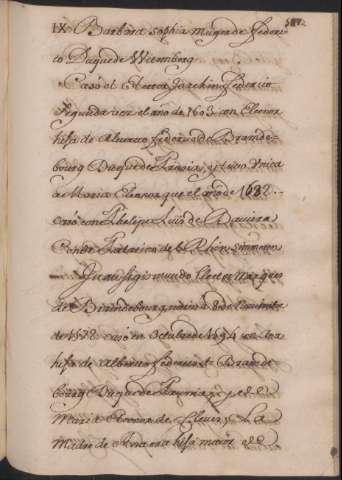 587.
IX. Barbara Sophia muger de Federi-
co Duque de Witemberg
Casó el Elector Joachin Federico
segunda vez el año de 1603 con Eleonor
hija de Alverto Federico de Brande-
bourg Duque de Prusia, y tuvo Unica
a Maria Eleonor que el año de 1632
casó con Phelipe Luis de Baviera
Conde Palatino de el Rhin
Juan Sigismundo Elector Marques
de Brandebourg nació a 8 de
de 1572 casó en Octubre de 1594 con
hija de Alberto Federico de Brande
bourg Duque de Prusia y de
Maria Eleonor de Cleves, La
Madre de Ana era hija maior de